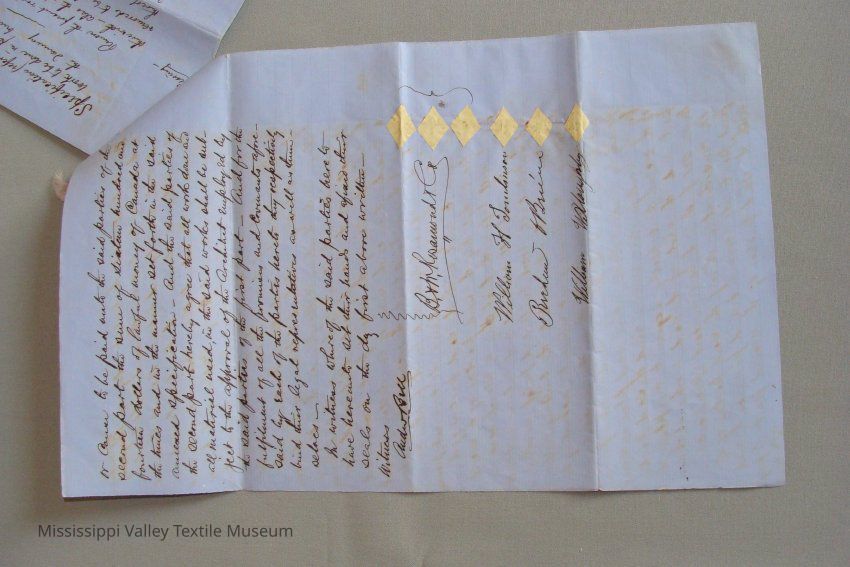 or cause to be paid unto the said parties of the
second part the sum of sixteen hundred and
fourteen dollars of lawful money of Canada at
the times and in the manner set forth in the said
annexed specification - And the said parties of
the second part hereby agree that all work done and
all material used, in the said works shall be sub-
ject to the approval of the Architect employed by
the said parties of the first part - And for the
fulfilment of all the promises and covenants afore-
said by each of the parties hereto they respectively
bind their legal representatives as well as them-
selves -
In witness whereof the said parties hereto
have hereunto set their hands and affixed their
seals on the day first above written -
Witness
B & W Rosamond & Co
William H
William
Specification
Mississippi Valley Textile Museum